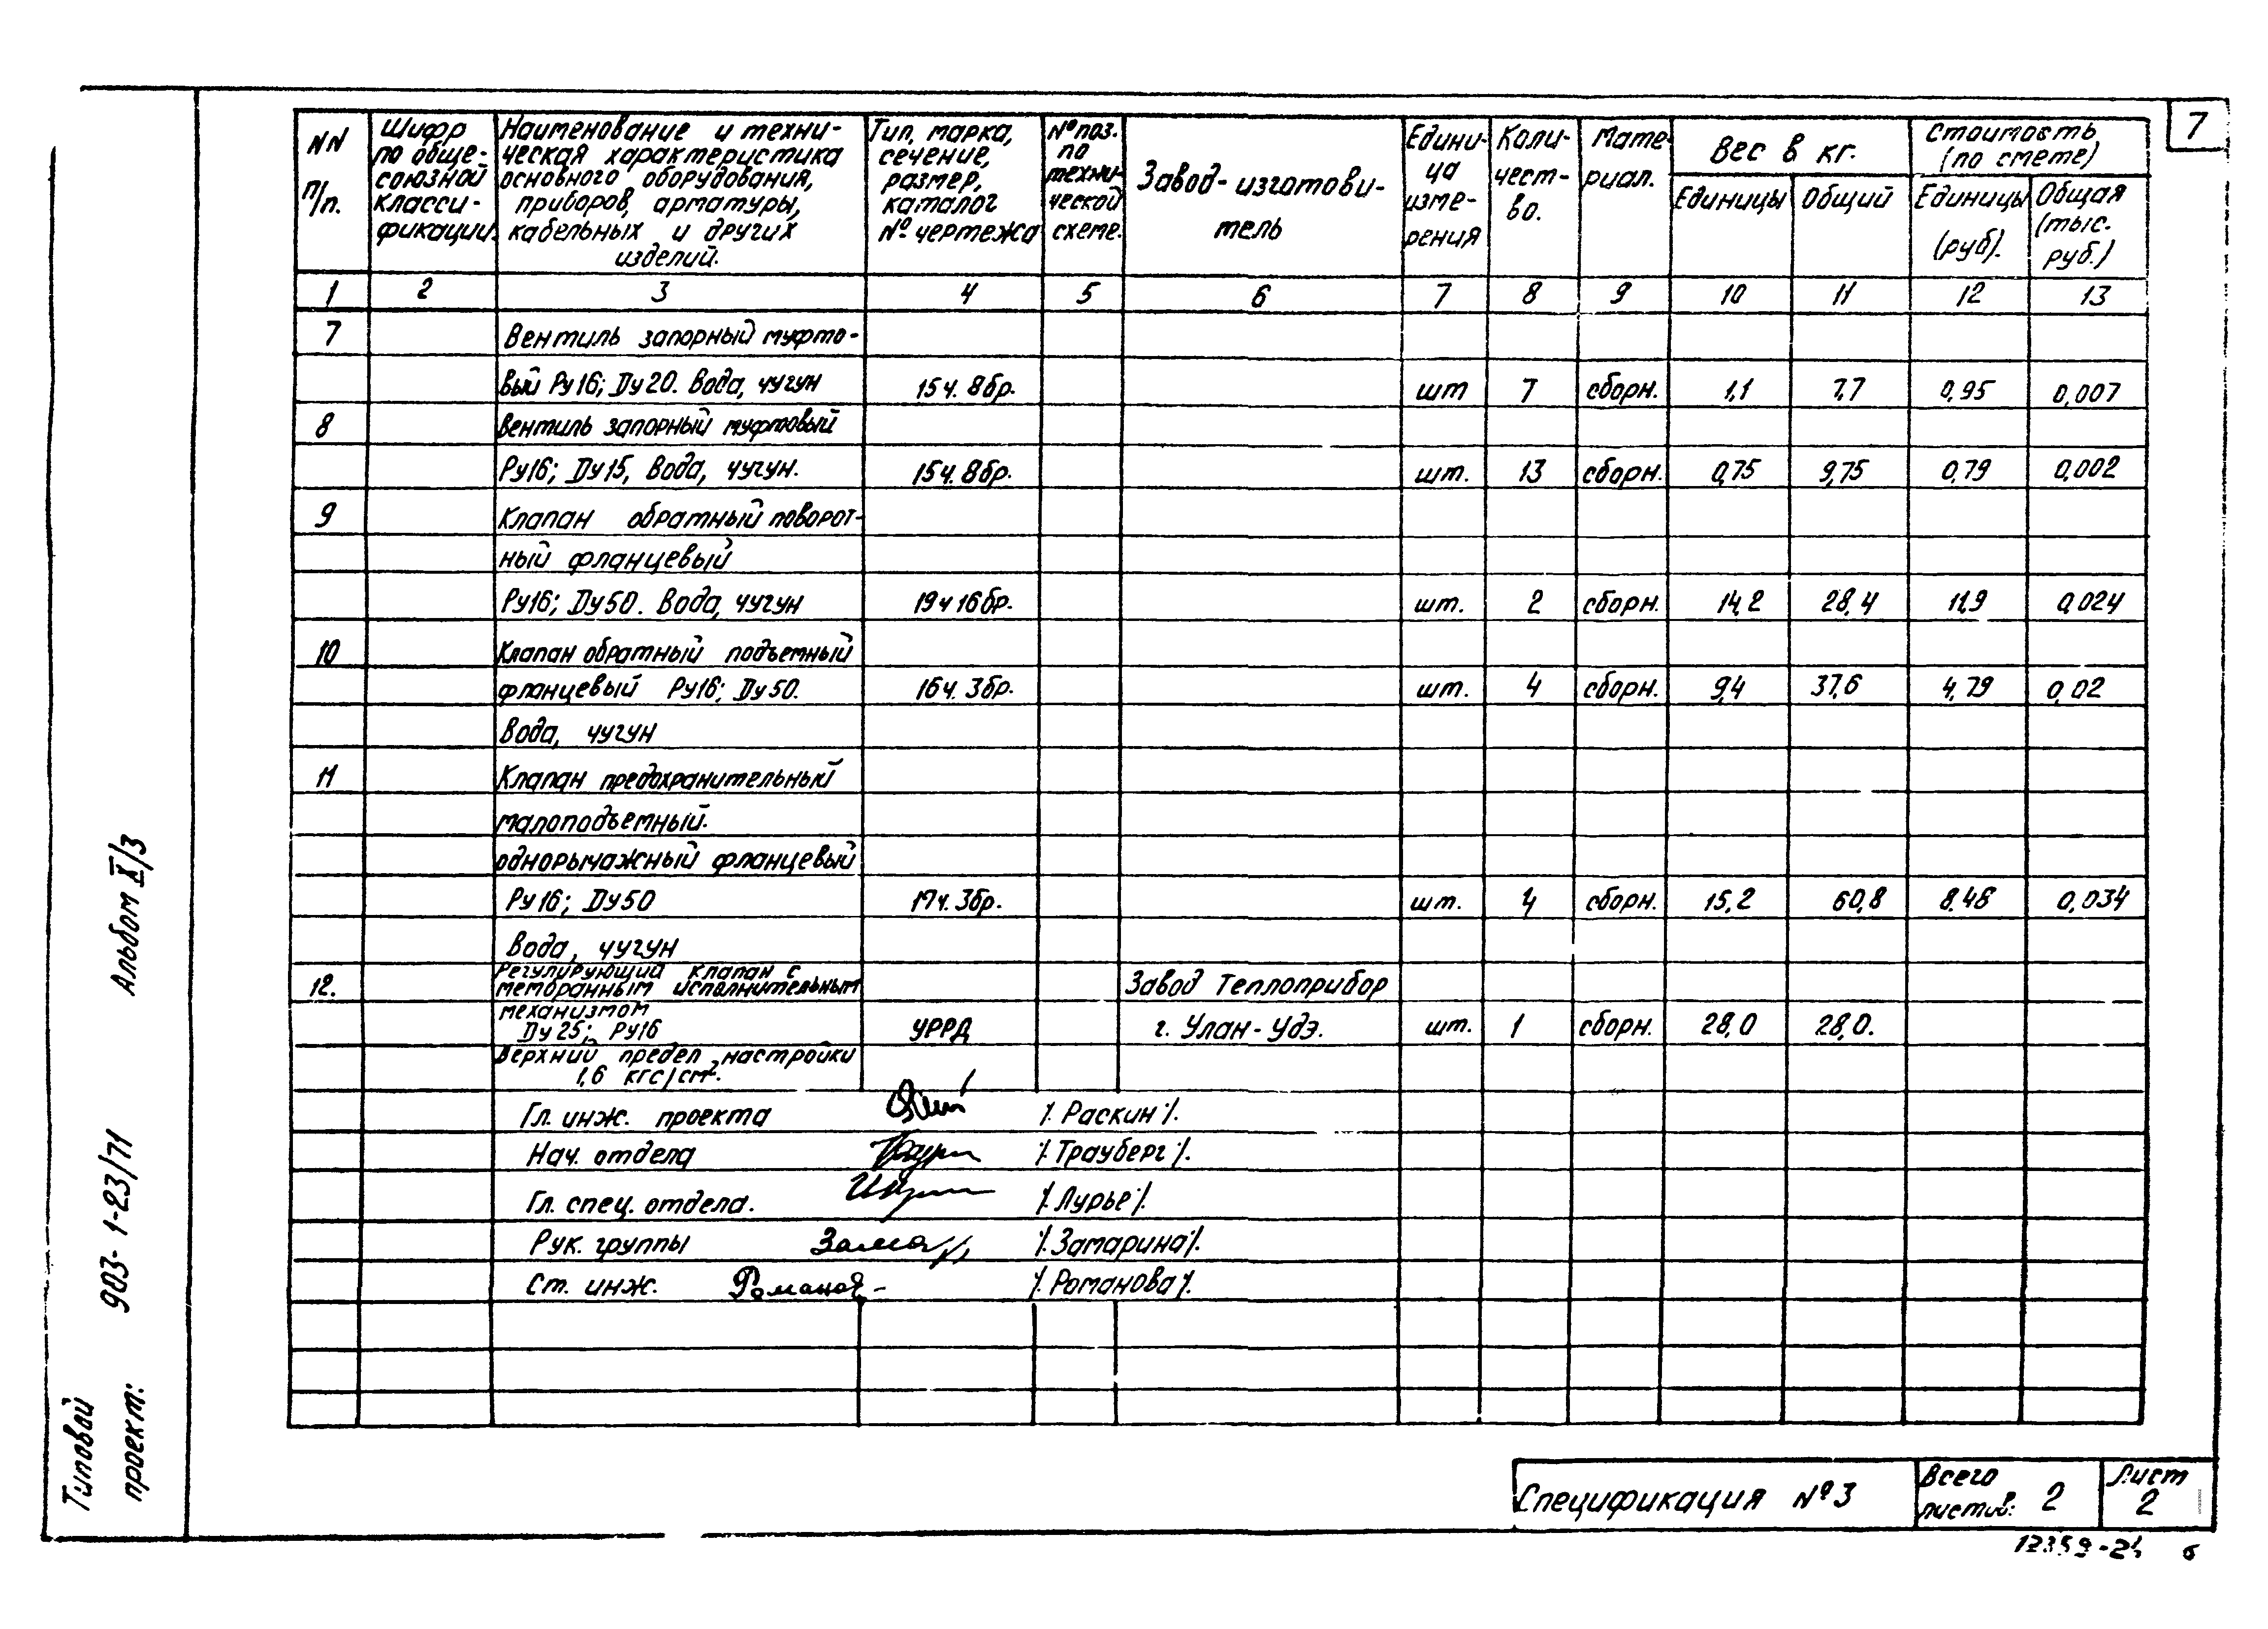 7
NN п/п.
Шифр по обще-союзной класси-фикации.
Наименование и техни-ческая характеристика основного оборудования, приборов, арматуры, кабельных и других изделий.
Тип, марка, сечение, размер, каталог № чертежа
№ поз. по техни-ческой схеме.
Завод-изготови-тель
Едини-ца изме-рения
Коли-чест-во.
Мате-риал.
Вес в кг.
Единицы
Общий
Стоимость (по смете)
Единицы (руб).
Общая (тыс. руб.)
1 2 3 4 5 6 7 8 9 10 11 12 13
7 Вентиль запорный муфто-
вый Ру16; Ду20. Вода, чугун 15ч. 8бр. шт 7 сборн. 1,1 7,7 0,95 0,007
8 Вентиль запорный муфтовый
Ру16; Ду15, Вода, чугун. 15ч. 8бр. шт. 13 сборн. 0,75 9,75 0,79 0,002
9 Клапан обратный поворот-
ный фланцевый
Ру16; Ду50. Вода, чугун 19ч 16бр. шт. 2 сборн. 14,2 28,4 11,9 0,024
10 Клапан обратный подъемный
фланцевый Ру16; Ду50. 16ч. 3бр. шт. 4 сборн. 9,4 37,6 4,79 0,02
Вода, чугун
11 Клапан предохранительный
малоподъемный.
однорычажный фланцевый
Ру16; Ду50 17ч. 3бр. шт. 4 сборн. 15,2 60,8 8,48 0,034
Вода, чугун
12. Регулирующий клапан с
мембранным исполнительным Завод Теплоприбор
механизмом
Ду25; Ру16 УРРД г. Улан-Удэ. шт. 1 сборн. 28,0 28,0.
Верхний предел настройки
1,6 кгс/см².
Гл. инж. проекта /. Раскин /.
Нач. отдела /. Трауберг /.
Гл. спец. отдела. /. Лурье /.
Рук. группы /. Замарина /.
Ст. инж. Романов- /. Романова /.
Альбом X/3
Типовой проект: 903-1-23/71
Спецификация №3
Всего листов: 2
Лист 2
12359-24 6